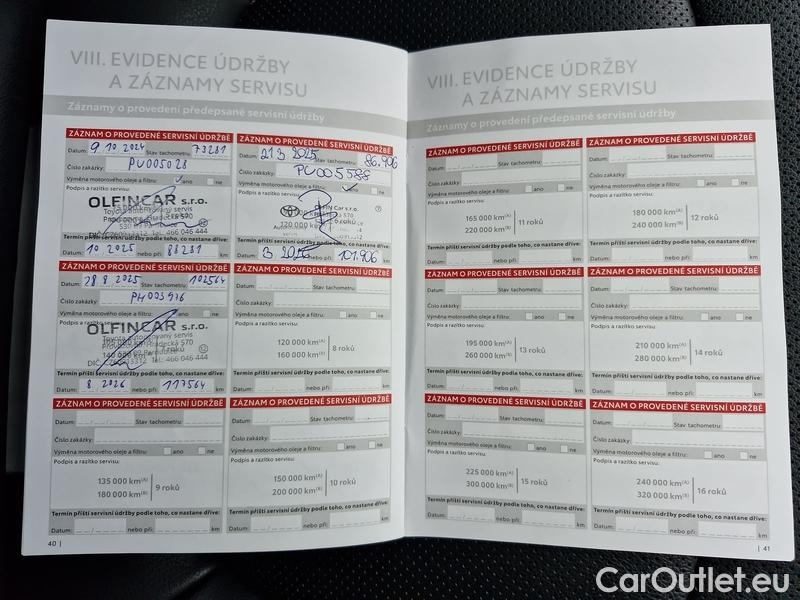 VIII. EVIDENCE ÚDRŽBY
A ZÁZNAMY SERVISU
Záznamy o provedení předepsané servisní údržby
ZÁZNAM O PROVEDENÉ SERVISNÍ ÚDRŽBĚ
Datum: 9.10.2024 Stav tachometru: 73281
Číslo zakázky: PU005028
Výměna motorového oleje a filtru: ano ne
Podpis a razítko servisu:
OLFINCAR s.r.o.
Tel: 466 046 444
Termín příští servisní údržby podle toho, co nastane dříve:
10 2025 88281 km
ZÁZNAM O PROVEDENÉ SERVISNÍ ÚDRŽBĚ
Datum: 21 3 2025 Stav tachometru: 86.906
Číslo zakázky: PU005588
Výměna motorového oleje a filtru: ano ne
Podpis a razítko servisu:
Termín příští servisní údržby podle toho, co nastane dříve:
3 2026 101.906 km
ZÁZNAM O PROVEDENÉ SERVISNÍ ÚDRŽBĚ
Datum: 28 8 2025 Stav tachometru: 102564
Číslo zakázky:
Výměna motorového oleje a filtru: ano ne
Podpis a razítko servisu:
OLFINCAR s.r.o.
Tel: 466 046 444
Termín příští servisní údržby podle toho, co nastane dříve:
Datum: 8 2026 nebo při: 117564 km
ZÁZNAM O PROVEDENÉ SERVISNÍ ÚDRŽBĚ
Datum: Stav tachometru:
Číslo zakázky:
Výměna motorového oleje a filtru: ano ne
Podpis a razítko servisu:
120 000 km(A)
160 000 km(B)
8 roků
Termín příští servisní údržby podle toho, co nastane dříve:
Datum: nebo při: km
ZÁZNAM O PROVEDENÉ SERVISNÍ ÚDRŽBĚ
Datum: Stav tachometru:
Číslo zakázky:
Výměna motorového oleje a filtru: ano ne
Podpis a razítko servisu:
135 000 km(A)
180 000 km(B)
9 roků
Termín příští servisní údržby podle toho, co nastane dříve:
Datum: nebo při: km
ZÁZNAM O PROVEDENÉ SERVISNÍ ÚDRŽBĚ
Datum: Stav tachometru:
Číslo zakázky:
Výměna motorového oleje a filtru: ano ne
Podpis a razítko servisu:
150 000 km(A)
200 000 km(B)
10 roků
Termín příští servisní údržby podle toho, co nastane dříve:
Datum: nebo při: km
40 |
VIII. EVIDENCE ÚDRŽBY
A ZÁZNAMY SERVISU
Záznamy o provedení předepsané servisní údržby
ZÁZNAM O PROVEDENÉ SERVISNÍ ÚDRŽBĚ
Datum: Stav tachometru:
Číslo zakázky:
Výměna motorového oleje a filtru: ano ne
Podpis a razítko servisu:
165 000 km(A)
220 000 km(B)
11 roků
Termín příští servisní údržby podle toho, co nastane dříve:
Datum: nebo při: km
ZÁZNAM O PROVEDENÉ SERVISNÍ ÚDRŽBĚ
Datum: Stav tachometru:
Číslo zakázky:
Výměna motorového oleje a filtru: ano ne
Podpis a razítko servisu:
180 000 km(A)
240 000 km(B)
12 roků
Termín příští servisní údržby podle toho, co nastane dříve:
Datum: nebo při: km
ZÁZNAM O PROVEDENÉ SERVISNÍ ÚDRŽBĚ
Datum: Stav tachometru:
Číslo zakázky:
Výměna motorového oleje a filtru: ano ne
Podpis a razítko servisu:
195 000 km(A)
260 000 km(B)
13 roků
Termín příští servisní údržby podle toho, co nastane dříve:
Datum: nebo při: km
ZÁZNAM O PROVEDENÉ SERVISNÍ ÚDRŽBĚ
Datum: Stav tachometru:
Číslo zakázky:
Výměna motorového oleje a filtru: ano ne
Podpis a razítko servisu:
210 000 km(A)
280 000 km(B)
14 roků
Termín příští servisní údržby podle toho, co nastane dříve:
Datum: nebo při: km
ZÁZNAM O PROVEDENÉ SERVISNÍ ÚDRŽBĚ
Datum: Stav tachometru:
Číslo zakázky:
Výměna motorového oleje a filtru: ano ne
Podpis a razítko servisu:
225 000 km(A)
300 000 km(B)
15 roků
Termín příští servisní údržby podle toho, co nastane dříve:
Datum: nebo při: km
ZÁZNAM O PROVEDENÉ SERVISNÍ ÚDRŽBĚ
Datum: Stav tachometru:
Číslo zakázky:
Výměna motorového oleje a filtru: ano ne
Podpis a razítko servisu:
240 000 km(A)
320 000 km(B)
16 roků
Termín příští servisní údržby podle toho, co nastane dříve:
Datum: nebo při: km
| 41
CarOutlet.eu